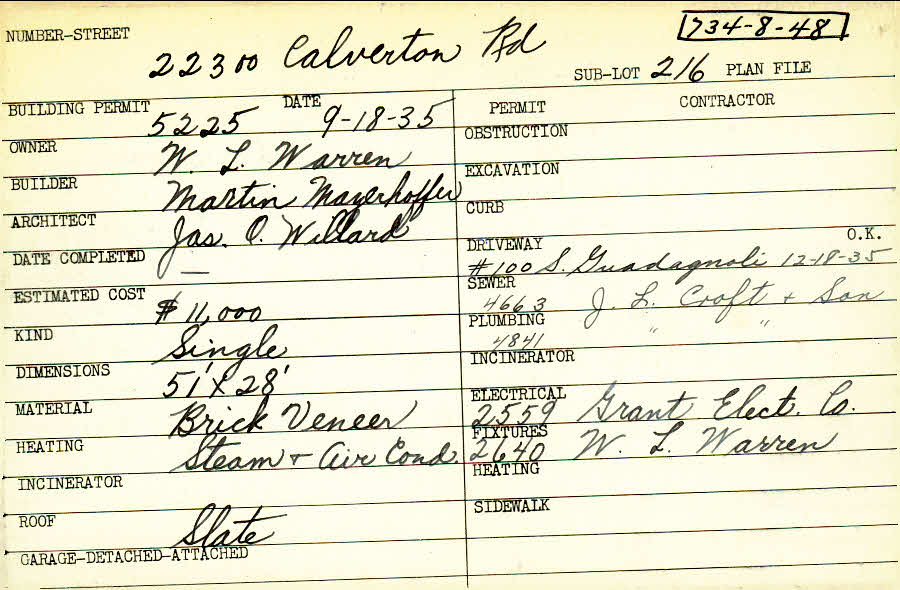 734-8-48
NUMBER-STREET 22300 Calverton Rd
SUB-LOT 216 PLAN FILE
BUILDING PERMIT 5225 DATE 9-18-35
OWNER W. L. Warren
BUILDER Martin Mayerhoffer
ARCHITECT Jas. O. Willard
DATE COMPLETED —
ESTIMATED COST $11,000
KIND Single
DIMENSIONS 51' x 28'
MATERIAL Brick Veneer
HEATING Steam + Air Cond.
INCINERATOR
ROOF Slate
GARAGE-DETACHED-ATTACHED
PERMIT CONTRACTOR
OBSTRUCTION
EXCAVATION
CURB
DRIVEWAY #100 S. Guadagnoli O.K. 12-18-35
SEWER 4663 J. L. Croft + Son
PLUMBING 4841 " "
INCINERATOR
ELECTRICAL 2559 Grant Elect. Co.
FIXTURES 2640 W. L. Warren
HEATING
SIDEWALK